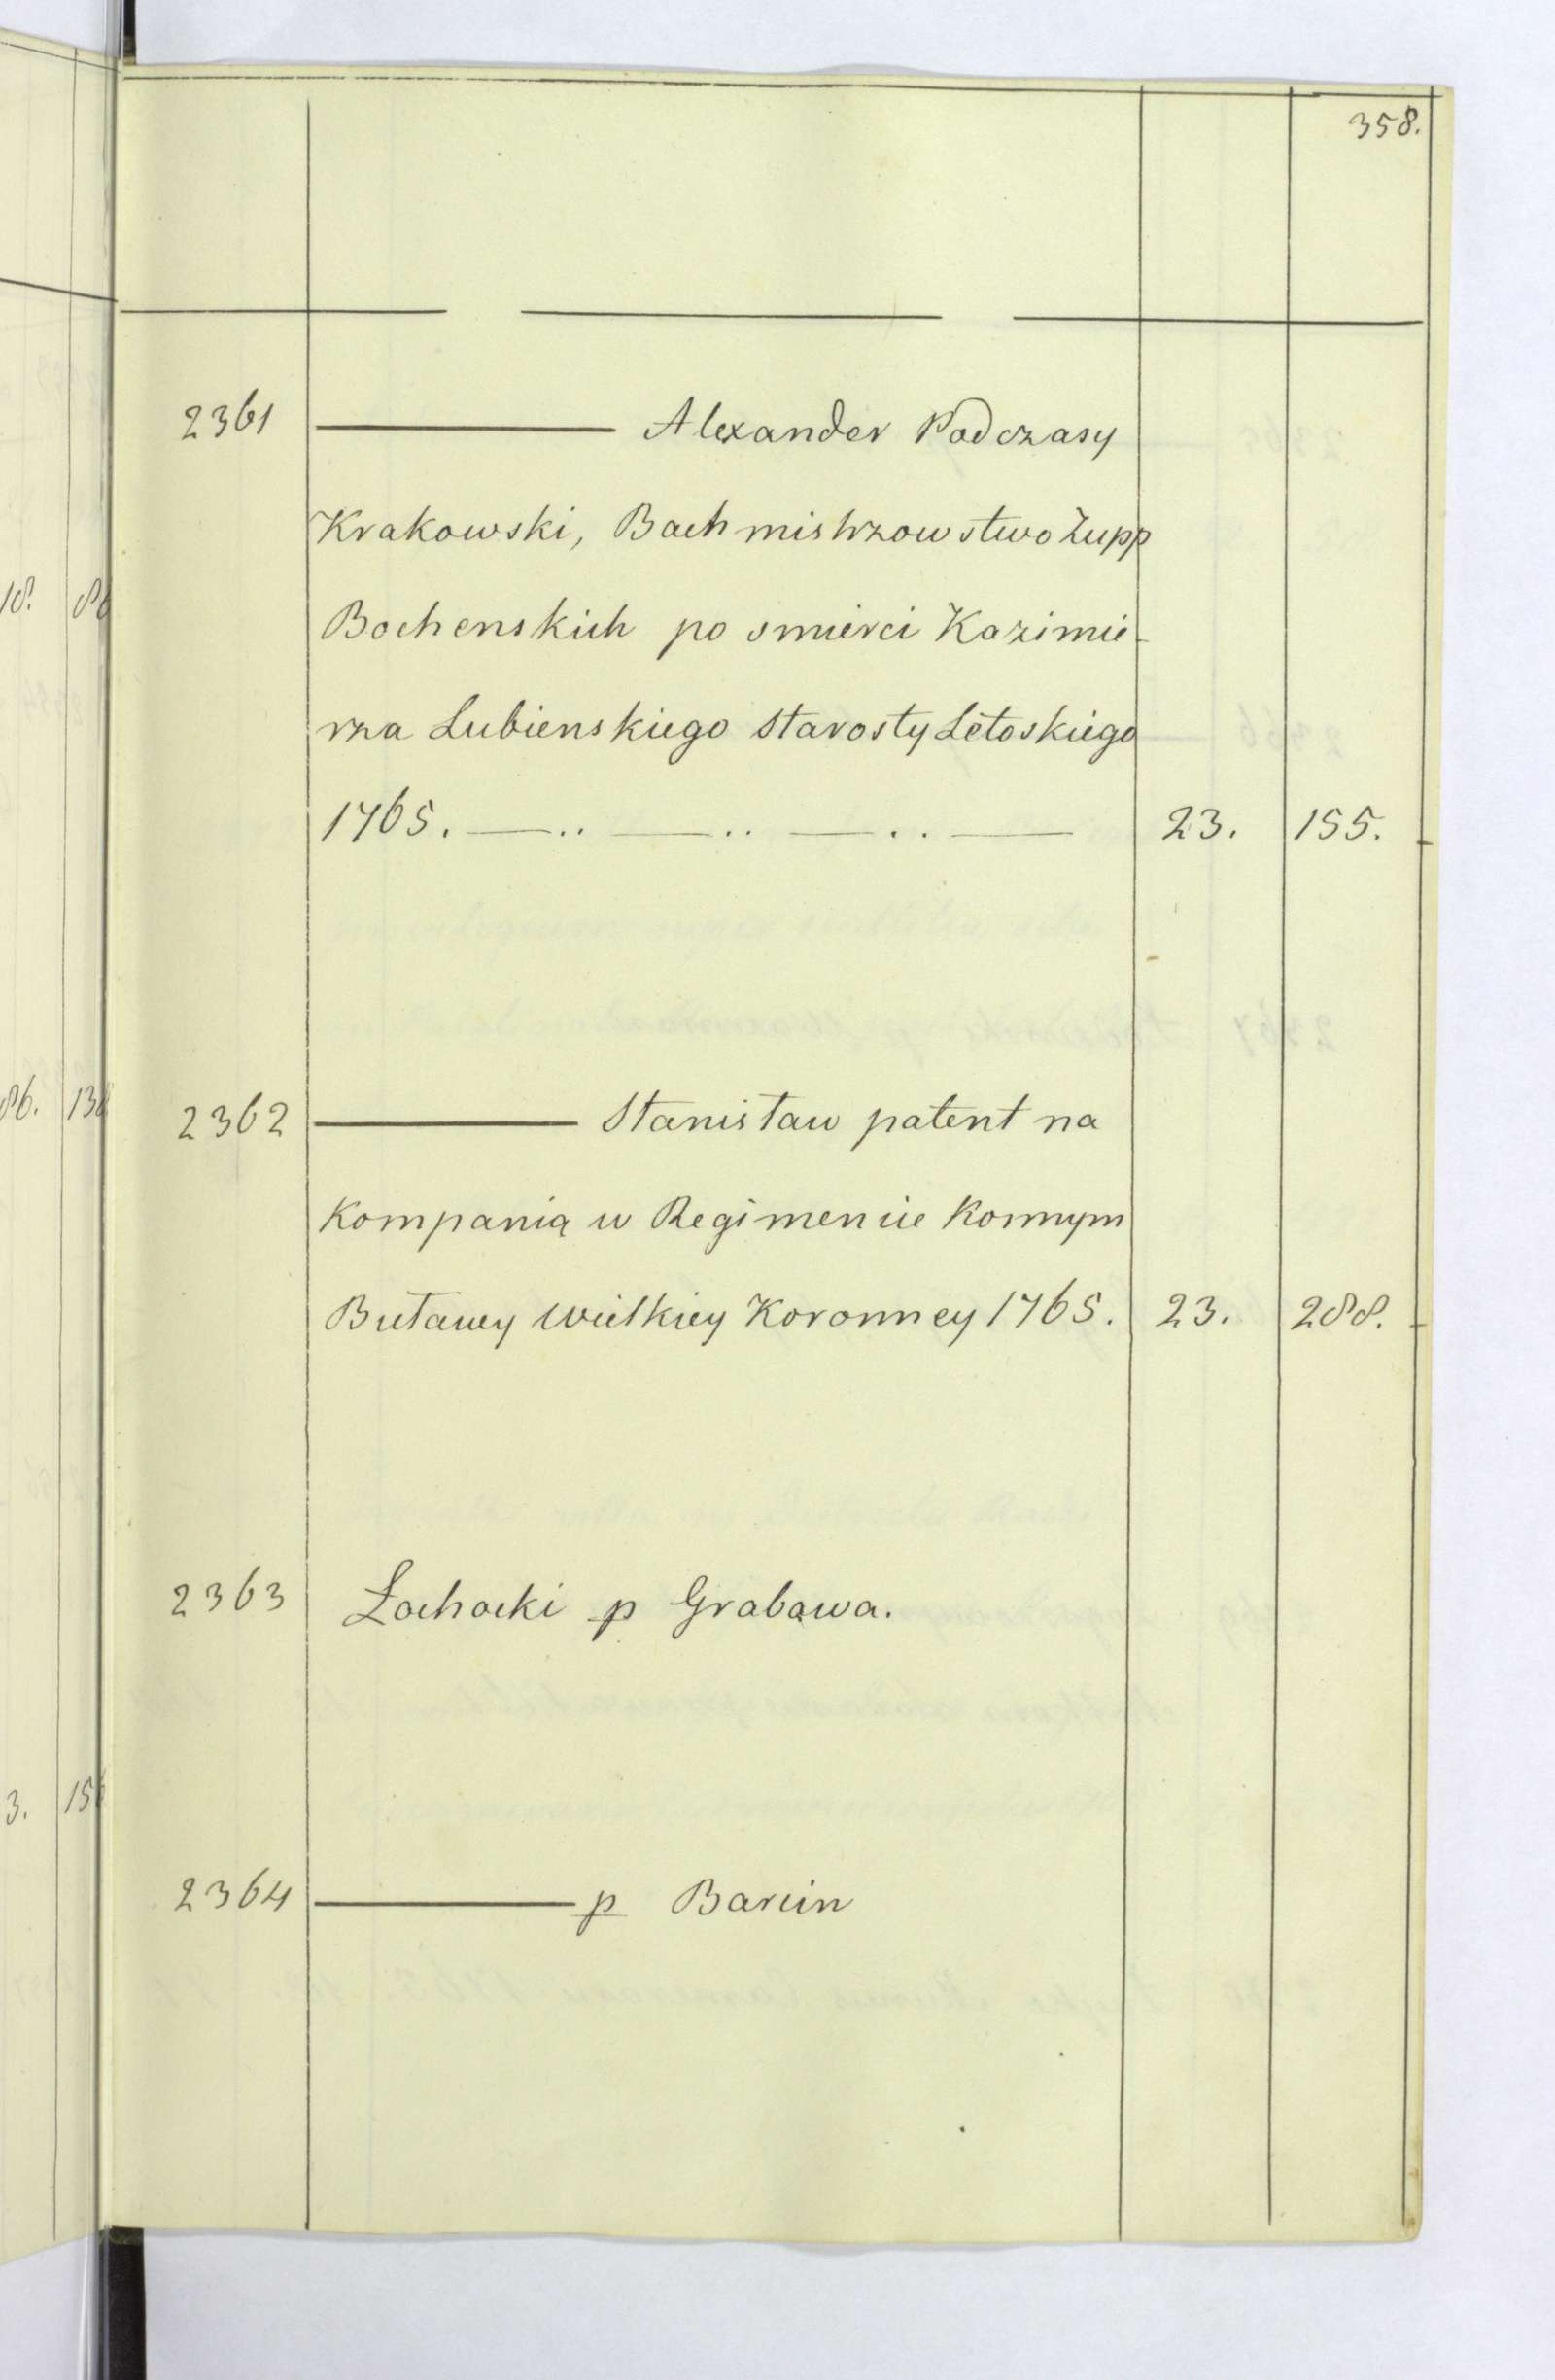 358.
2361 ——— Alexander Podczasy
Krakowski, Bachmistrzowstwo Żupp
Bochenskich po smierci Kazimie-
rza Lubienskiego Starosty Letoskiego
1765. —..—..—..— 23. 155.
2362 ——— Stanisław patent na
Kompanią w Regimencie Konnym
Buławy Wielkiey Koronney 1765. 23. 288.
2363 Łochocki p Grabowa.
2364 ——— p Barcin
18. 86
86. 13
3. 15